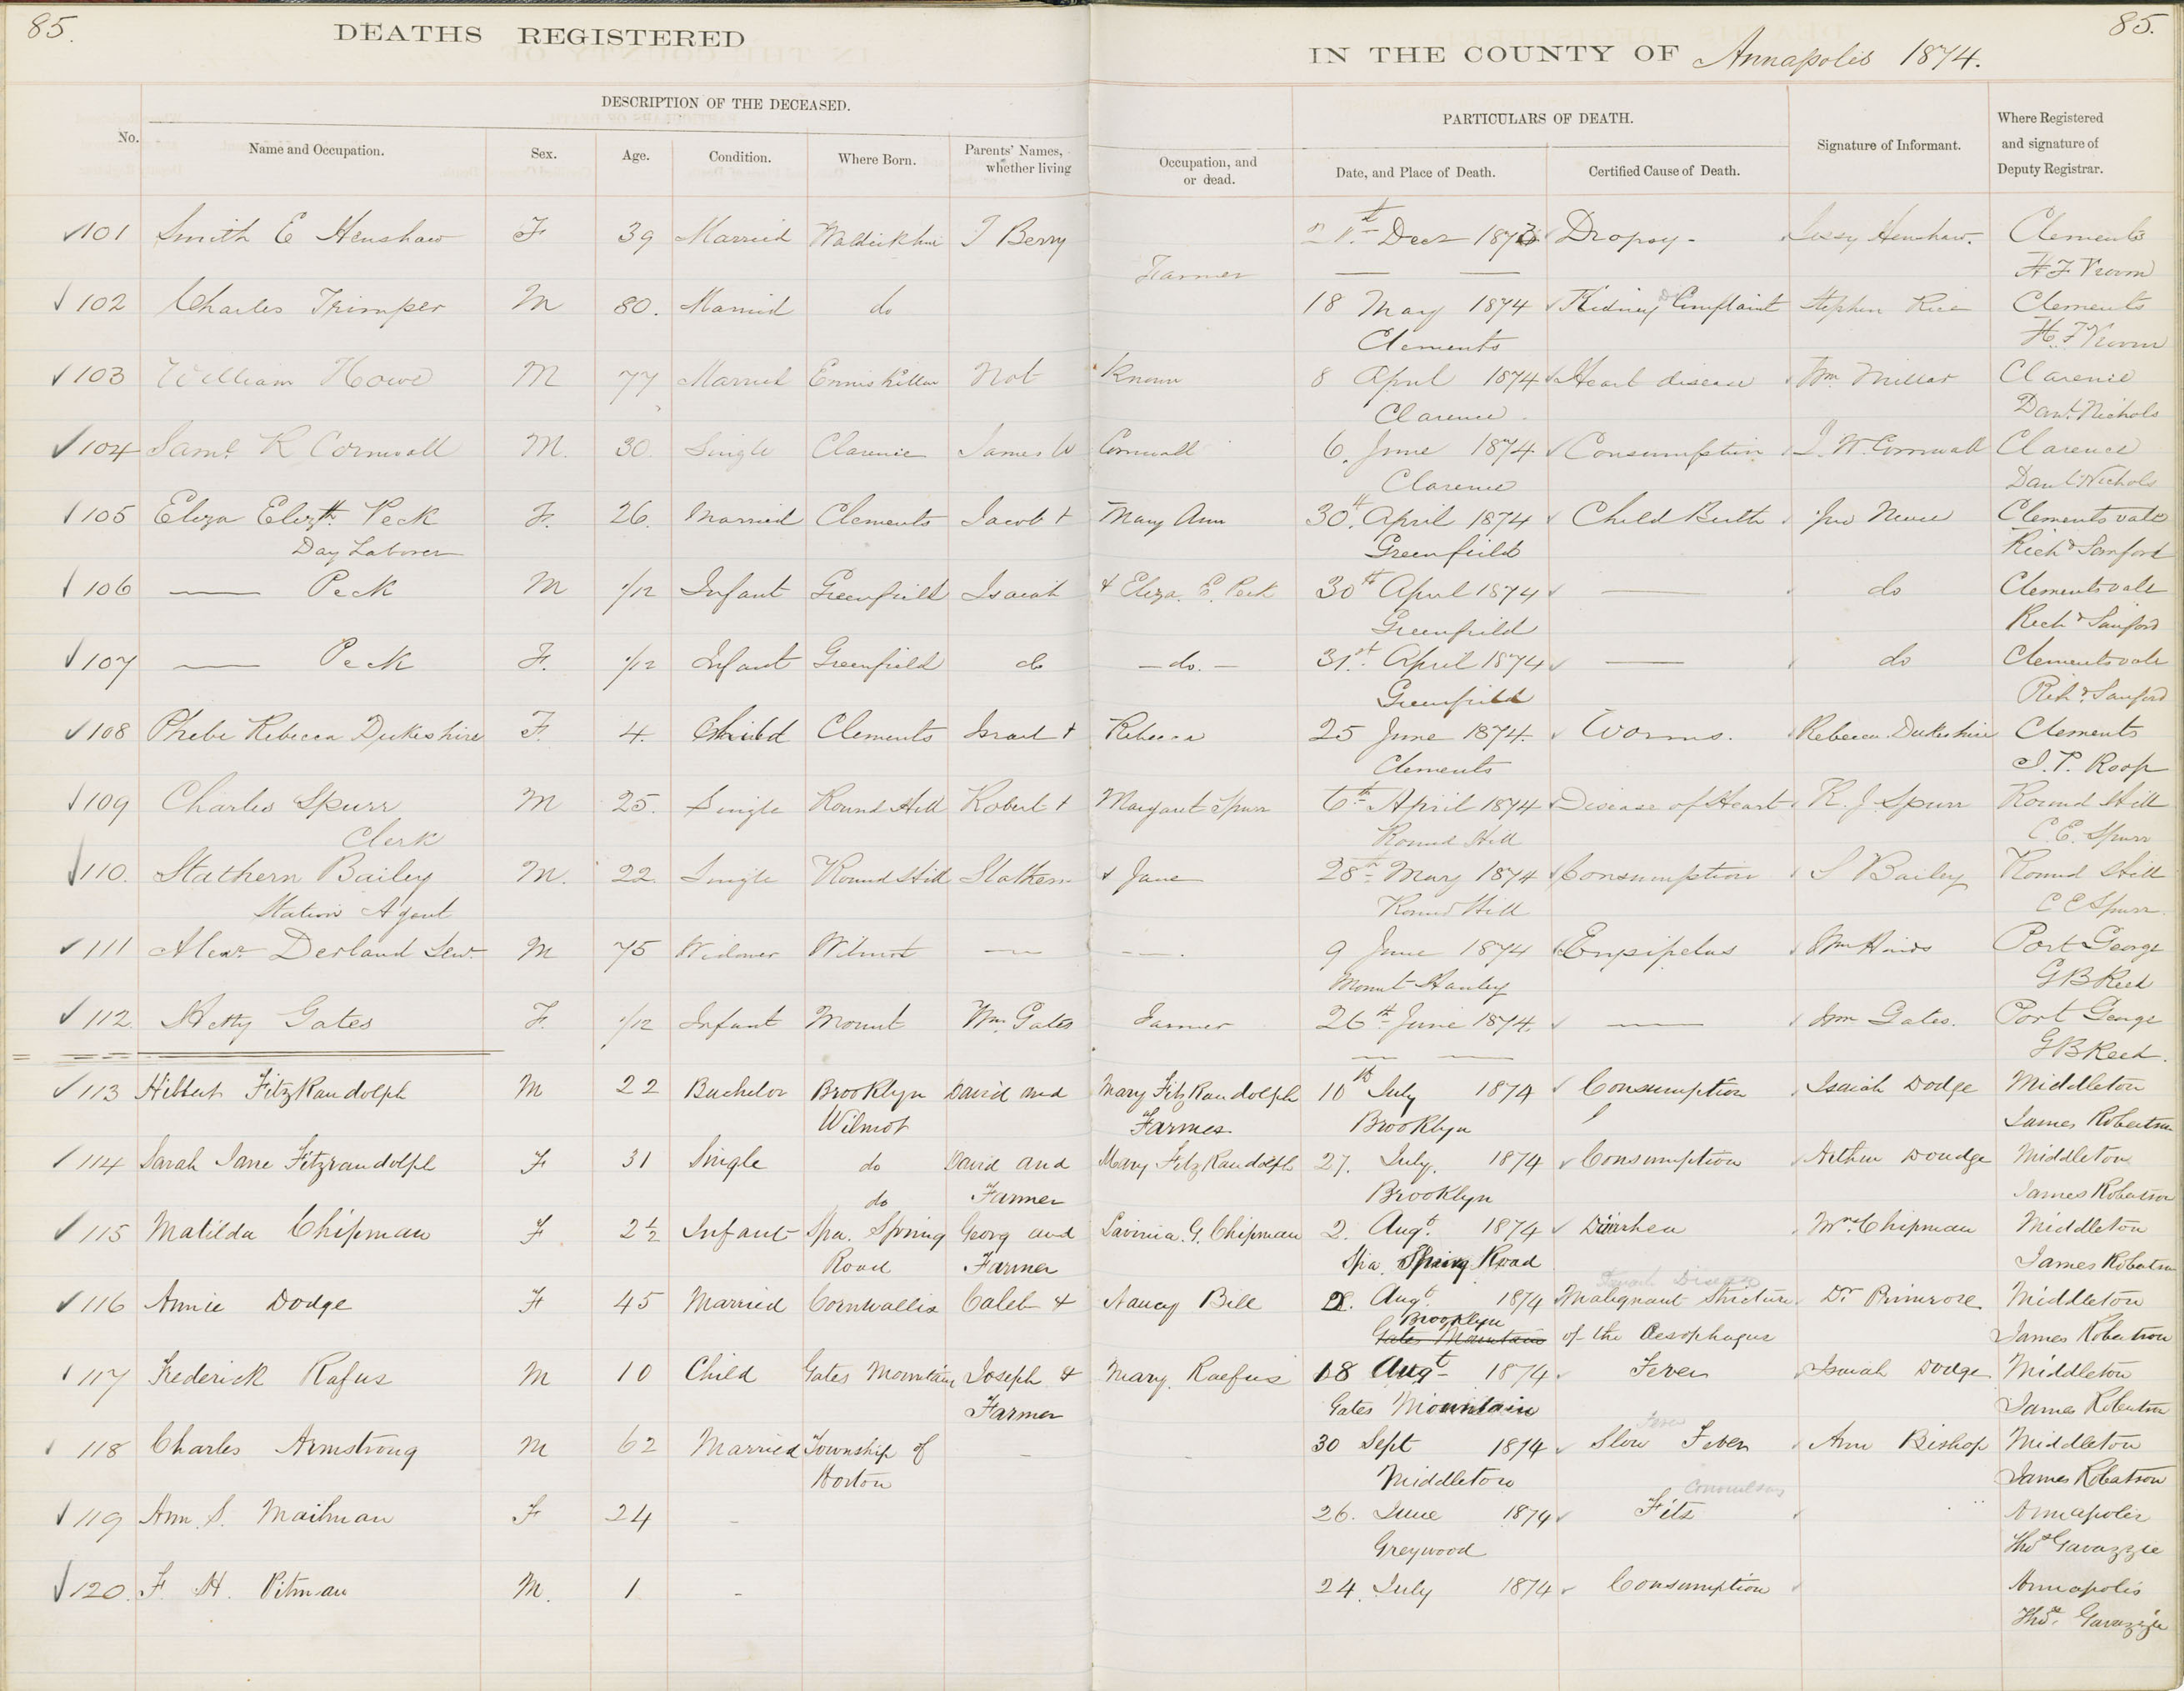 85.
DEATHS REGISTERED
IN THE COUNTY OF Annapolis 1874.
85.
DESCRIPTION OF THE DECEASED.
PARTICULARS OF DEATH.
No.
Name and Occupation.
Sex.
Age.
Condition.
Where Born.
Parents' Names, whether living
Occupation, and or dead.
Date, and Place of Death.
Certified Cause of Death.
Signature of Informant.
Where Registered and signature of Deputy Registrar.
101 Smith E Henshaw F 39 Married J Berry Decr 1873 Dropsy - Henshaw. Clements
Farmer — — H F Vroom
102 Charles Trimper M 80. Married do 18 May 1874 Kidney Complaint Stephen Rice Clements
Clements H. F Vroom
103 William Howe M 77 Married Enniskillen Not Known 8 April 1874 Heart disease Wm Millar Clarence
Clarence Danl. Nichols
104 Saml. R Cornwall M. 30. Single Clarence James W Cornwall 6. June 1874 Consumption J. W. Cornwall Clarence
Clarence Danl Nichols
105 Eliza Elizth. Peck F. 26. Married Clements Jacob + Mary Ann 30th. April 1874 Child Birth Jno Clementsvale
Day Laborer Greenfield Richd Sanford
106 — Peck M 1/12 Infant Greenfield Isaiah + Eliza. E. Peck 30th April 1874 — do Clementsvale
Greenfield Richd Sanford
107 — Peck F. 1/12 Infant Greenfield do — do. — 31st. April 1874 — do Clementsvale
Greenfield Richd. Sanford
108 Phebe Rebecca Dukeshire F. 4. Child Clements Israel + Rebecca 25 June 1874. Worms. Rebecca Dukeshire Clements
Clements J. P. Roop
109 Charles Spurr M 25. Single Round Hill Robert + Margaret Spurr 6th April 1874 Disease of Heart R. J. Spurr Round Hill
Clerk Round Hill C. E. Spurr
110. Stathern Bailey M. 22. Single Round Hill Stathern + Jane 28th May 1874 Consumption S Bailey Round Hill
Station Agent Round Hill C E Spurr
111 Alexr. Derland Senr. M 75 Widower Wilmot — — 9 June 1874 Erysipelas Wm Hinds Port George
Mount Hanley G B Reed
112 Hetty Gates F. 1/12 Infant Mount Wm. Gates Farmer 26th June 1874. — Wm Gates. Port George
— — G B Reed.
113 Hibbert FitzRandolph M 22 Bachelor Brooklyn David and Mary FitzRandolph 10th July 1874 Consumption Isaiah Dodge Middleton
Wilmot Farmer Brooklyn James Robertson
114 Sarah Jane Fitzrandolph F 31 Single do David and Mary FitzRandolph 27. July. 1874 Consumption Arthur Doudge Middleton
do Farmer Brooklyn James Robertson
115 Matilda Chipman F 2½ Infant Spa. Spring Georg and Lavinia. G. Chipman 2. Augt. 1874 Diarrhea Mrs. Chipman Middleton
Road Farmer Spa. Spring Road James Robertson
Disease
116 Annie Dodge F 45 Married Cornwallis Caleb & Nancy Bill 8. Augt. 1874 Malignant Stricture Dr Primrose Middleton
Brooklyn
Gates Mountain of the Oesophagus James Robertson
117 Frederick Rafus M 10 Child Gates Mountain Joseph & Mary. Raefus 18 Augt 1874 Fever Isaiah Dodge Middleton
Farmer Gates Mountain James Robertson
Fever
118 Charles Armstrong M 62 Married Township of - - 30 Sept 1874 Slow Fever Ann Bishop Middleton
Horton Middleton James Robertson
Convulsions
119 Ann. S. Mailman F 24 - 26. June 1874 Fits Annapolis
Greywood Thos Gavazzie
120. F H. Pitman M. 1 - 24. July 1874 Consumption Annapolis
Thos. Gavazzie